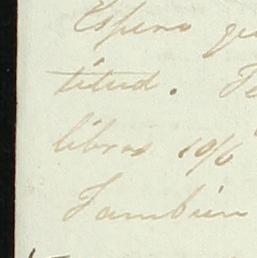 Espero
titud. Te
libros 10/6
Tambien